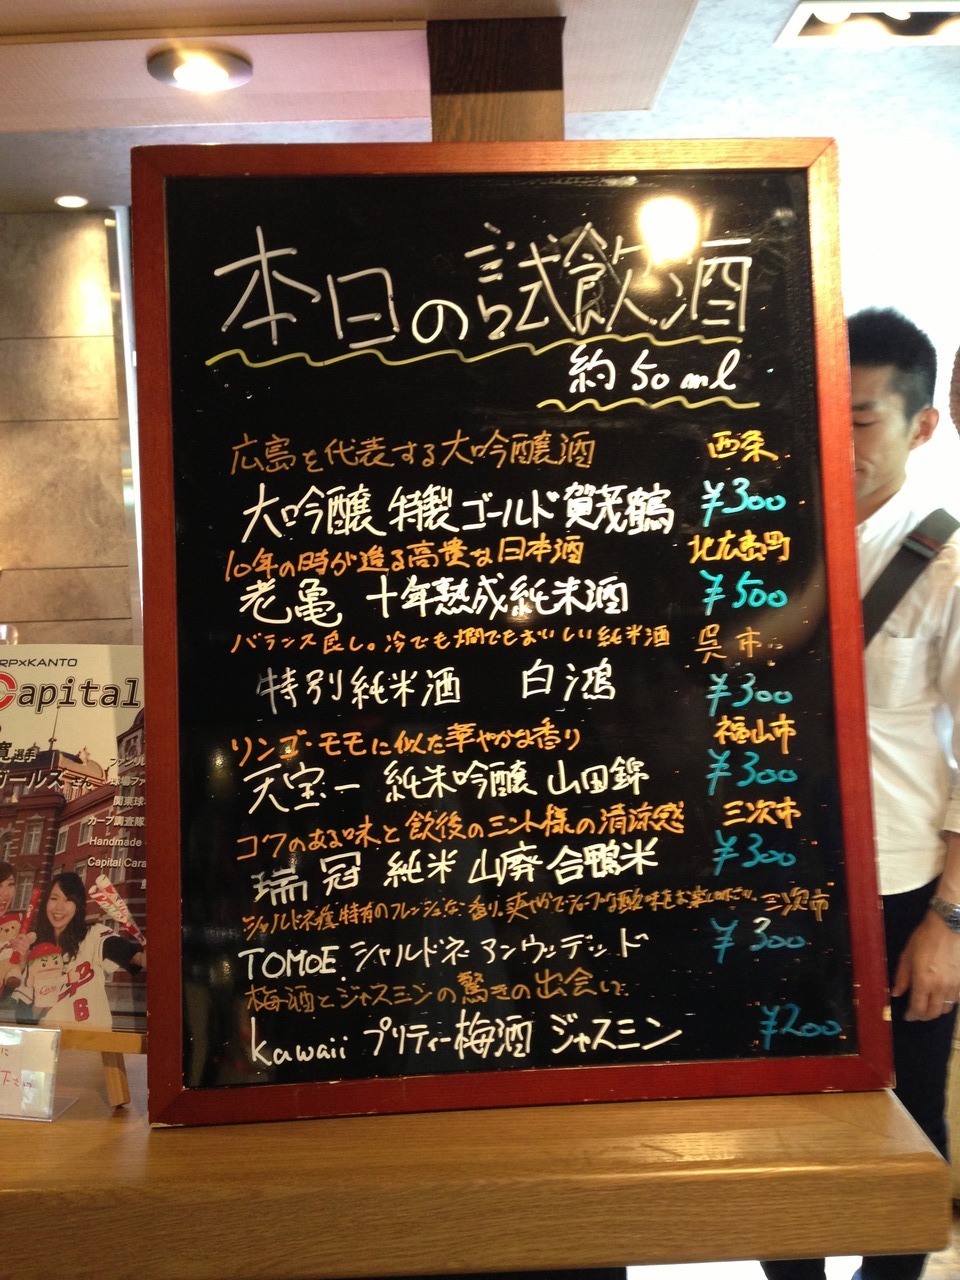 本日の試飲酒
約50ml
広島を代表する大吟醸酒 西条
大吟醸 特製ゴールド賀茂鶴 ¥300
10年の時が造る高貴な日本酒 北広島町
老亀 十年熟成純米酒 ¥500
バランス良し。冷でも燗でもおいしい純米酒 呉市
特別純米酒 白鴻 ¥300
リンゴ・モモに似た華やかな香り 福山市
天宝一 純米吟醸 山田錦 ¥300
コクのある味と飲後のミント様の清涼感 三次市
瑞冠 純米 山廃 合鴨米 ¥300
シャルドネ種特有のフレッシュな香り。爽やかでシャープな酸味をお楽しみ下さい 三次市
TOMOE シャルドネ アンウッデッド ¥300
梅酒とジャスミンの驚きの出会い
kawaii プリティー梅酒 ジャスミン ¥200
RP×KANTO
Capital
選手
ガールズ
関東
カープ調査隊
Handmade
Capital Cara